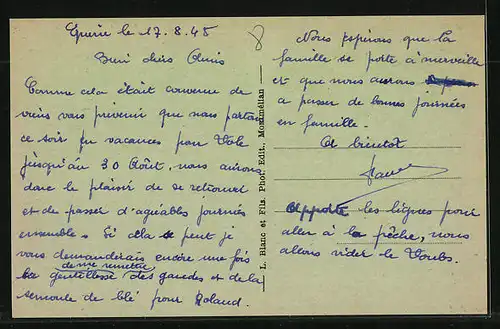 le 17.8.45
8
Bien chers Amis
Comme cela était convenu de
viens vous prévenir que nous partons
ce soir en vacances pour Dole
jusqu'au 30 Août, nous aurons
donc le plaisir de se retrouver
et de passer d'agréables journées
ensembles. Si cela se peut je
vous demanderais encore une fois
de me remettre
gentillesse des gaudes et de la
semoule de blé pour Roland.
L. Blanc et Fils, Phot. Edit., Montmélian
Nous espérons que la
famille se porte à merveille
et que nous aurons
a passer de bonnes journées
en famille.
A bientôt
Apporte les lignes pour
aller à la pêche, nous
allons vider le Doubs.